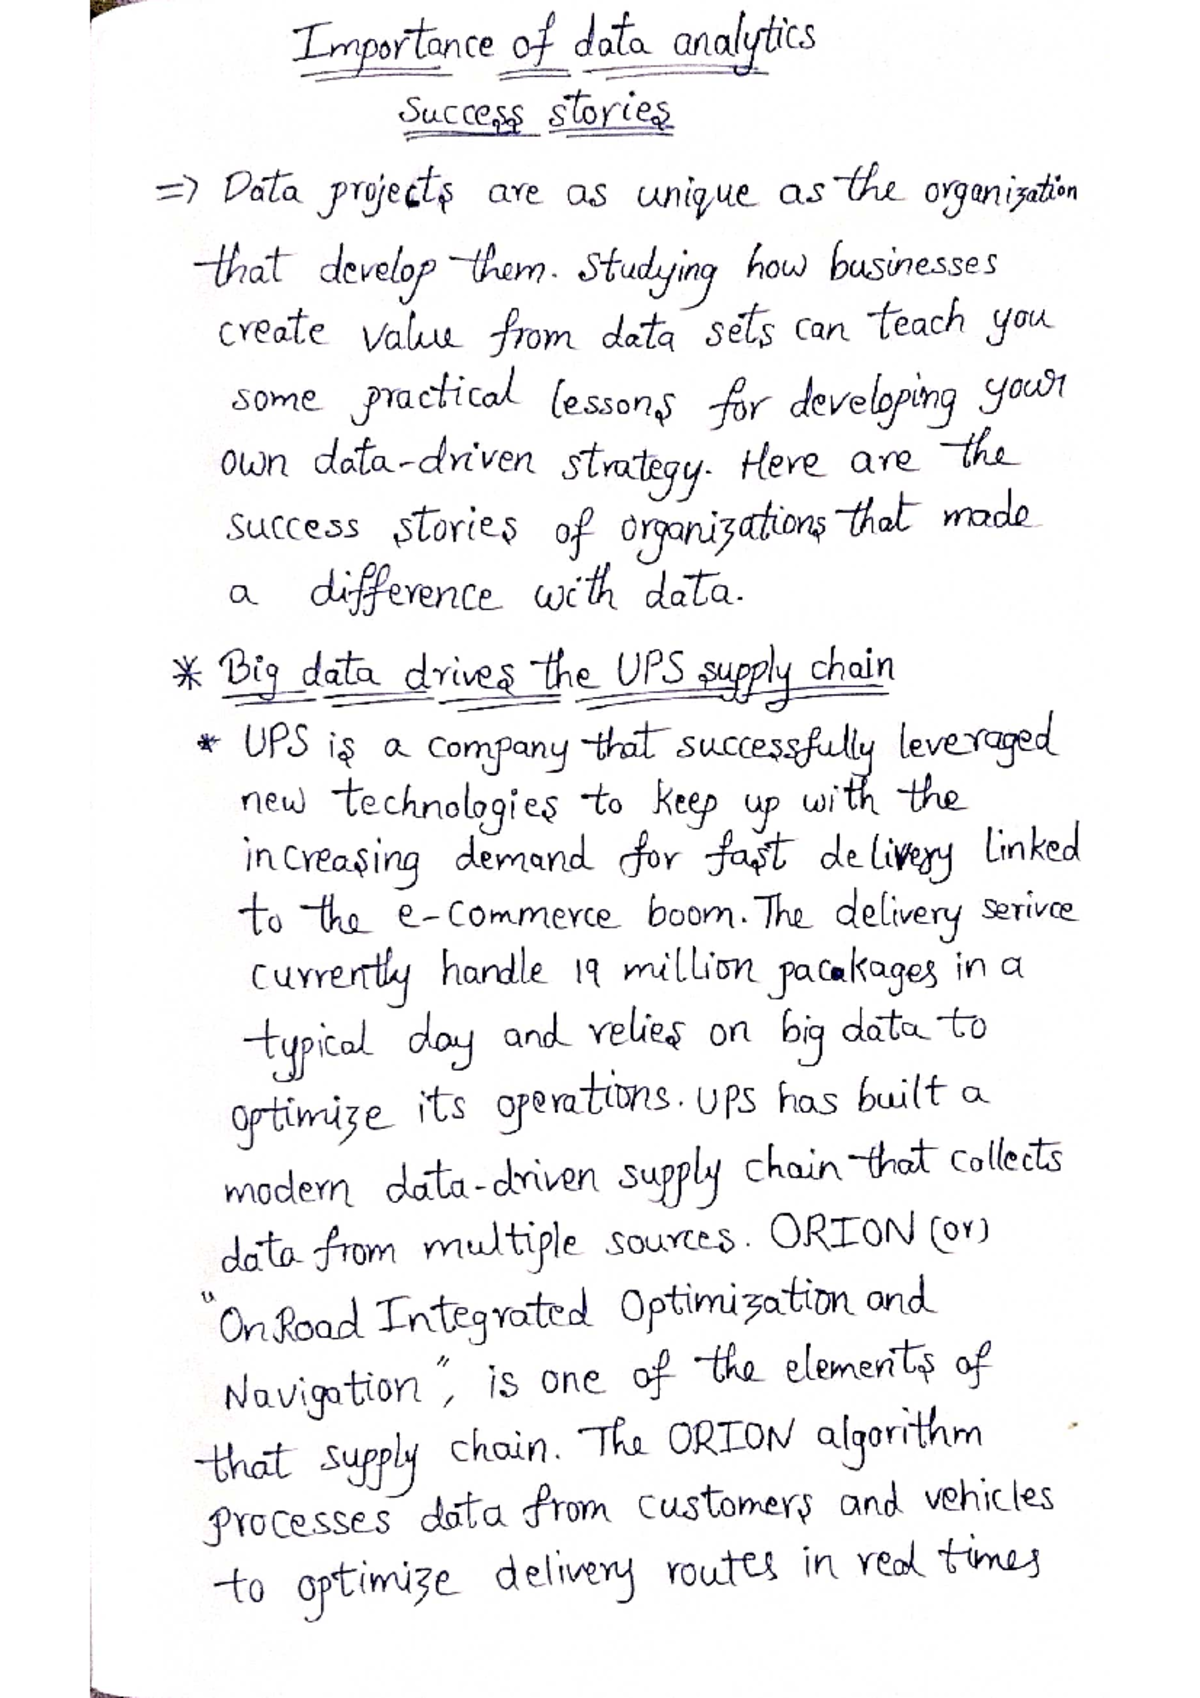 Importance of data analytics
Success stories
=> Data projects are as unique as the organization
that develop them. Studying how businesses
create value from data sets can teach you
some practical lessons for developing your
own data-driven strategy. Here are the
success stories of organizations that made
a difference with data.
* Big data drives the UPS supply chain
* UPS is a company that successfully leveraged
new technologies to keep up with the
increasing demand for fast delivery linked
to the e-commerce boom. The delivery serivce
currently handle 19 million pacakages in a
typical day and relies on big data to
optimize its operations. UPS has built a
modern data-driven supply chain that collects
data from multiple sources. ORION (or)
"OnRoad Integrated Optimization and
Navigation", is one of the elements of
that supply chain. The ORION algorithm
processes data from customers and vehicles
to optimize delivery routes in real times